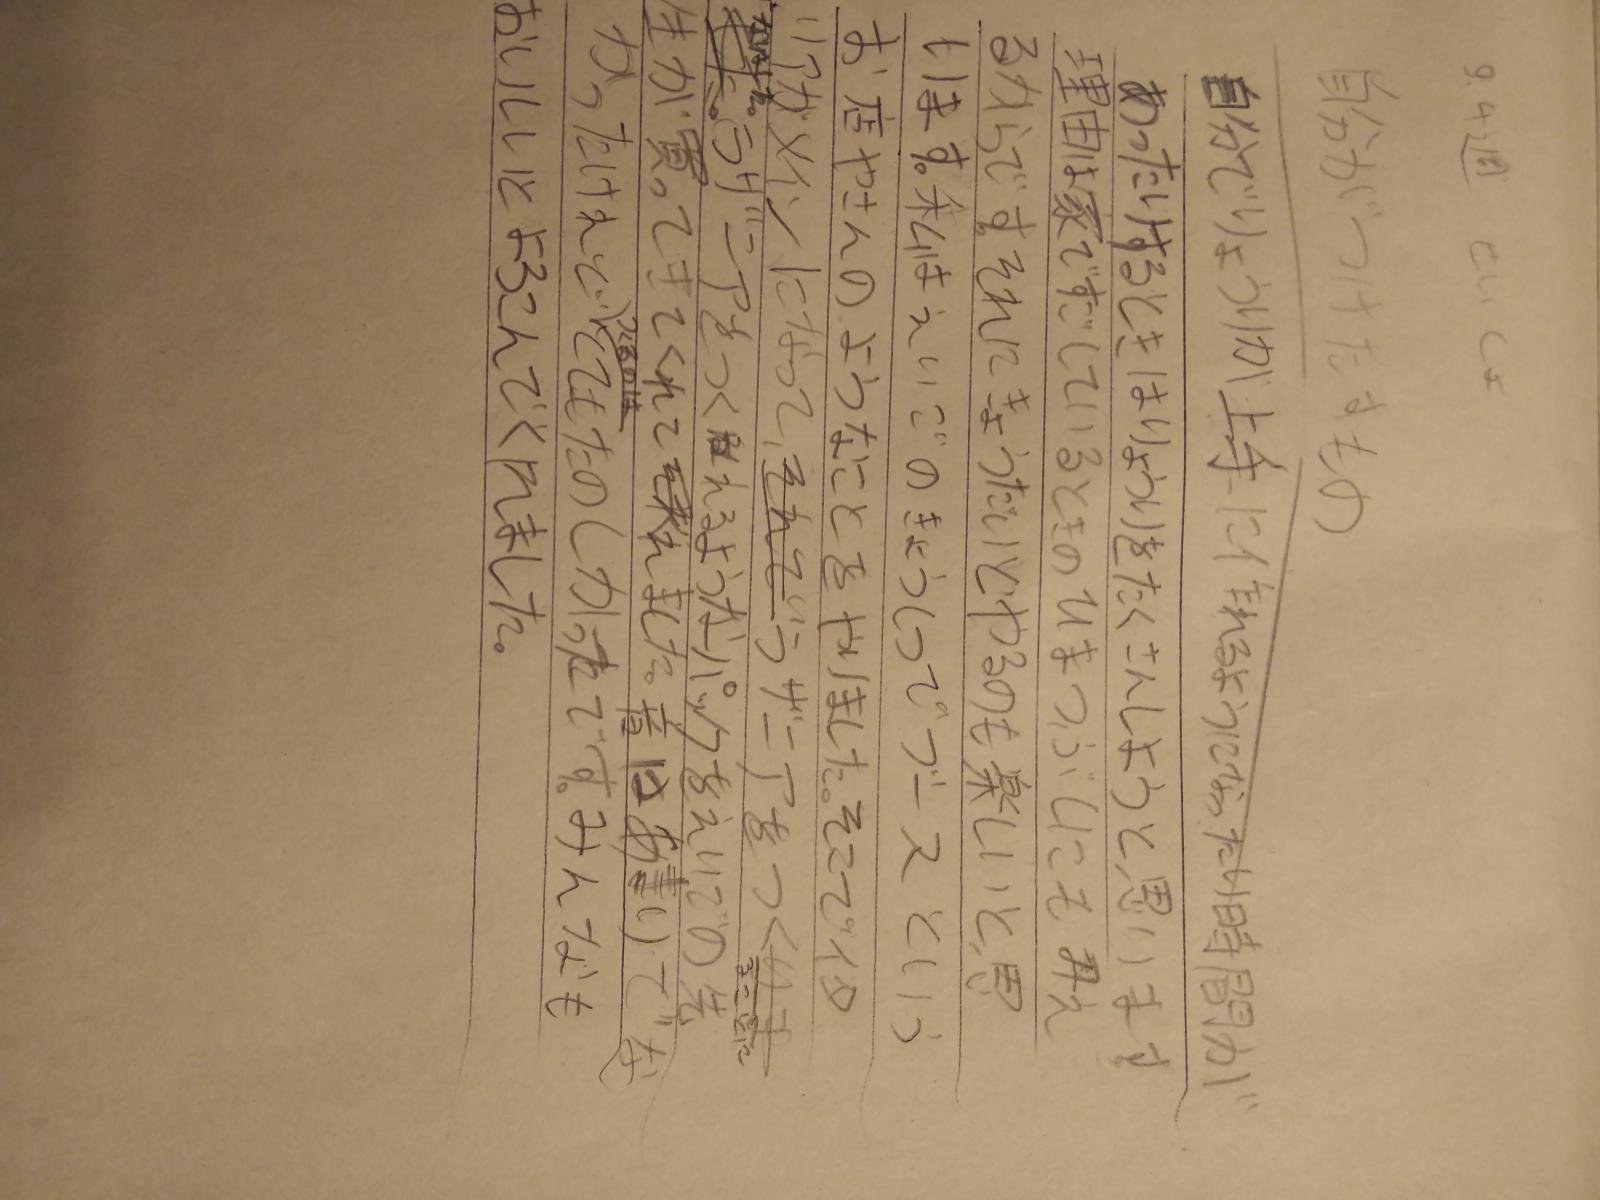 9.4週 せいしょ
自分がつけたすもの
自分でりょうりが上手に作れるようになったり時間が
あったりするときはりょうりをたくさんしようと思います
理由は家ですごしているときのひまつぶしにも
るからです。それにきょうだいとやるのも楽しいと思
います。私はえいごのきょうしつでブースという
お店やさんのようなことをやりました。そこでイタ
リアがメインになって、ラザニアをつく
ことになりました。ラザニアをつくれるようなパックをえいごの先
生が買ってきてくれてくれました。
かったけれどつくるのはとてもたのしかったです。みんなも
おいしいとよろこんでくれました。